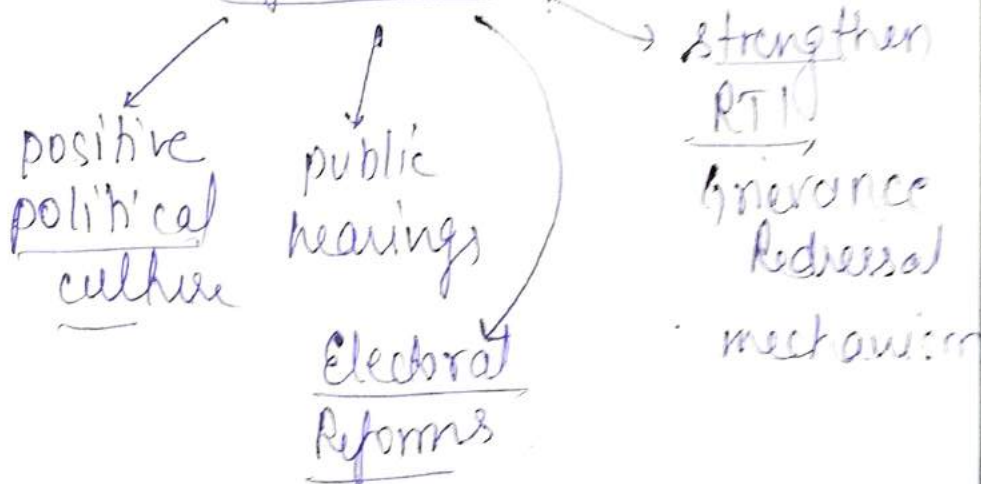 positive
political
culture
public
hearings
Electoral
Reforms
strengthen
RTI
Grievance
Redressal
mechanism